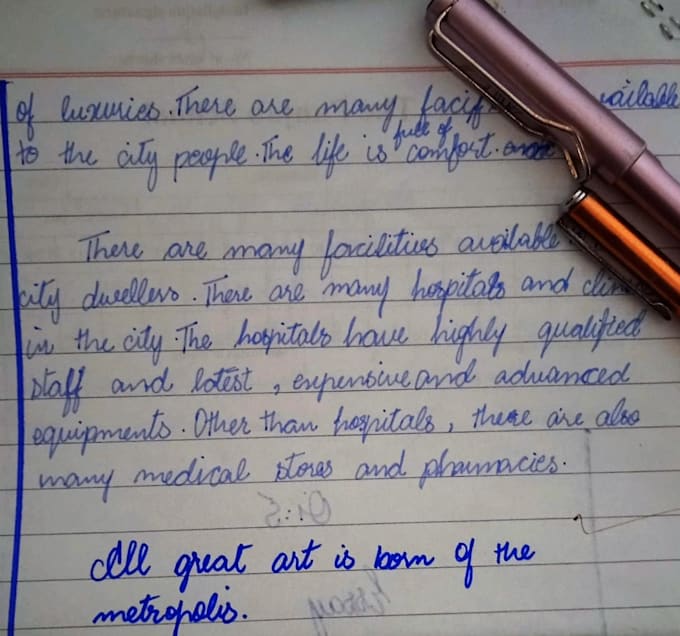 of luxuries. There are many
to the city people. The life is full of comfort.
There are many facilities available
city dwellers. There are many hospitals and
in the city. The hospitals have highly qualified
staff and latest, expensive and advanced
equipments. Other than hospitals, there are also
many medical stores and pharmacies.
All great art is born of the
metropolis.